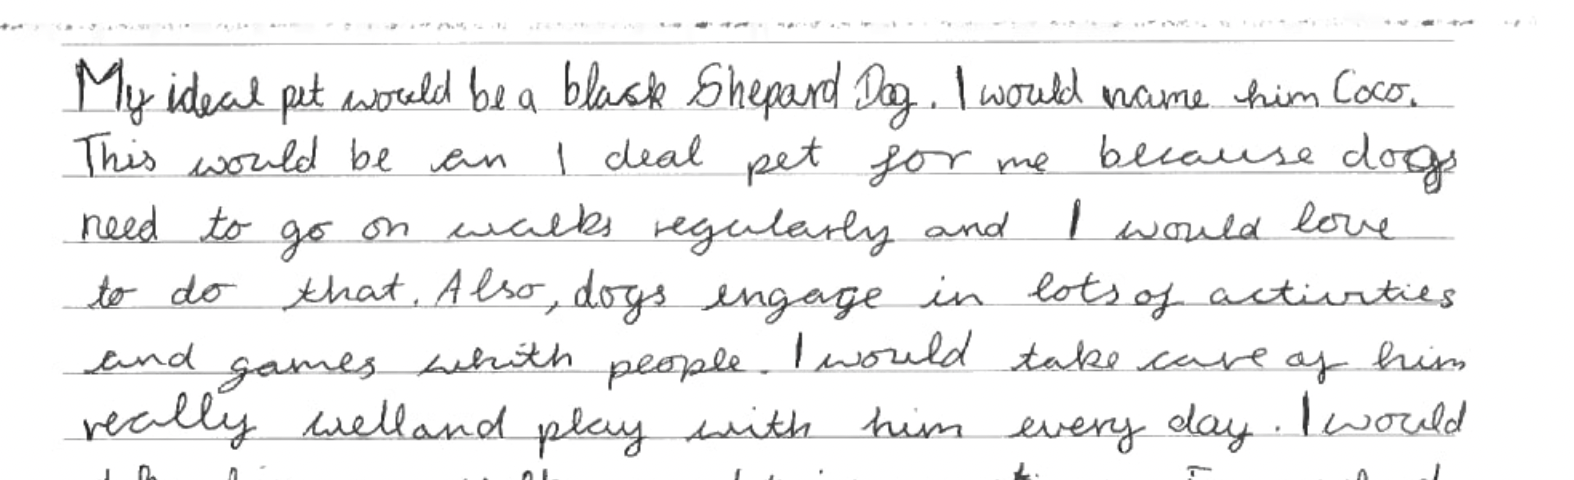 My ideal pet would be a black Shepard Dog. I would name him Coco.
This would be an I deal pet for me because dogs
need to go on walks regularly and I would love
to do that. Also, dogs engage in lots of activities
and games whith people. I would take care of him
really well and play with him every day. I would